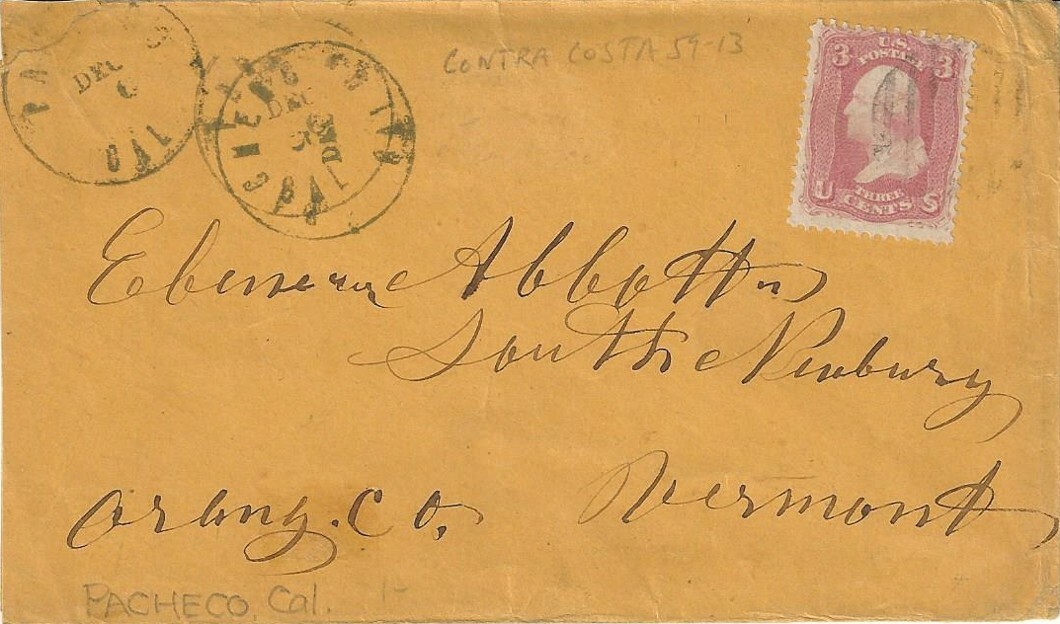 CONTRA COSTA 59-13
DEC
6
CAL
PACHECO CAL
DEC
3 U.S. 3
POSTAGE
U THREE S
CENTS
Ebenezer Abbott
South Newbury
Orang. Co.
Vermont
PACHECO, Cal.